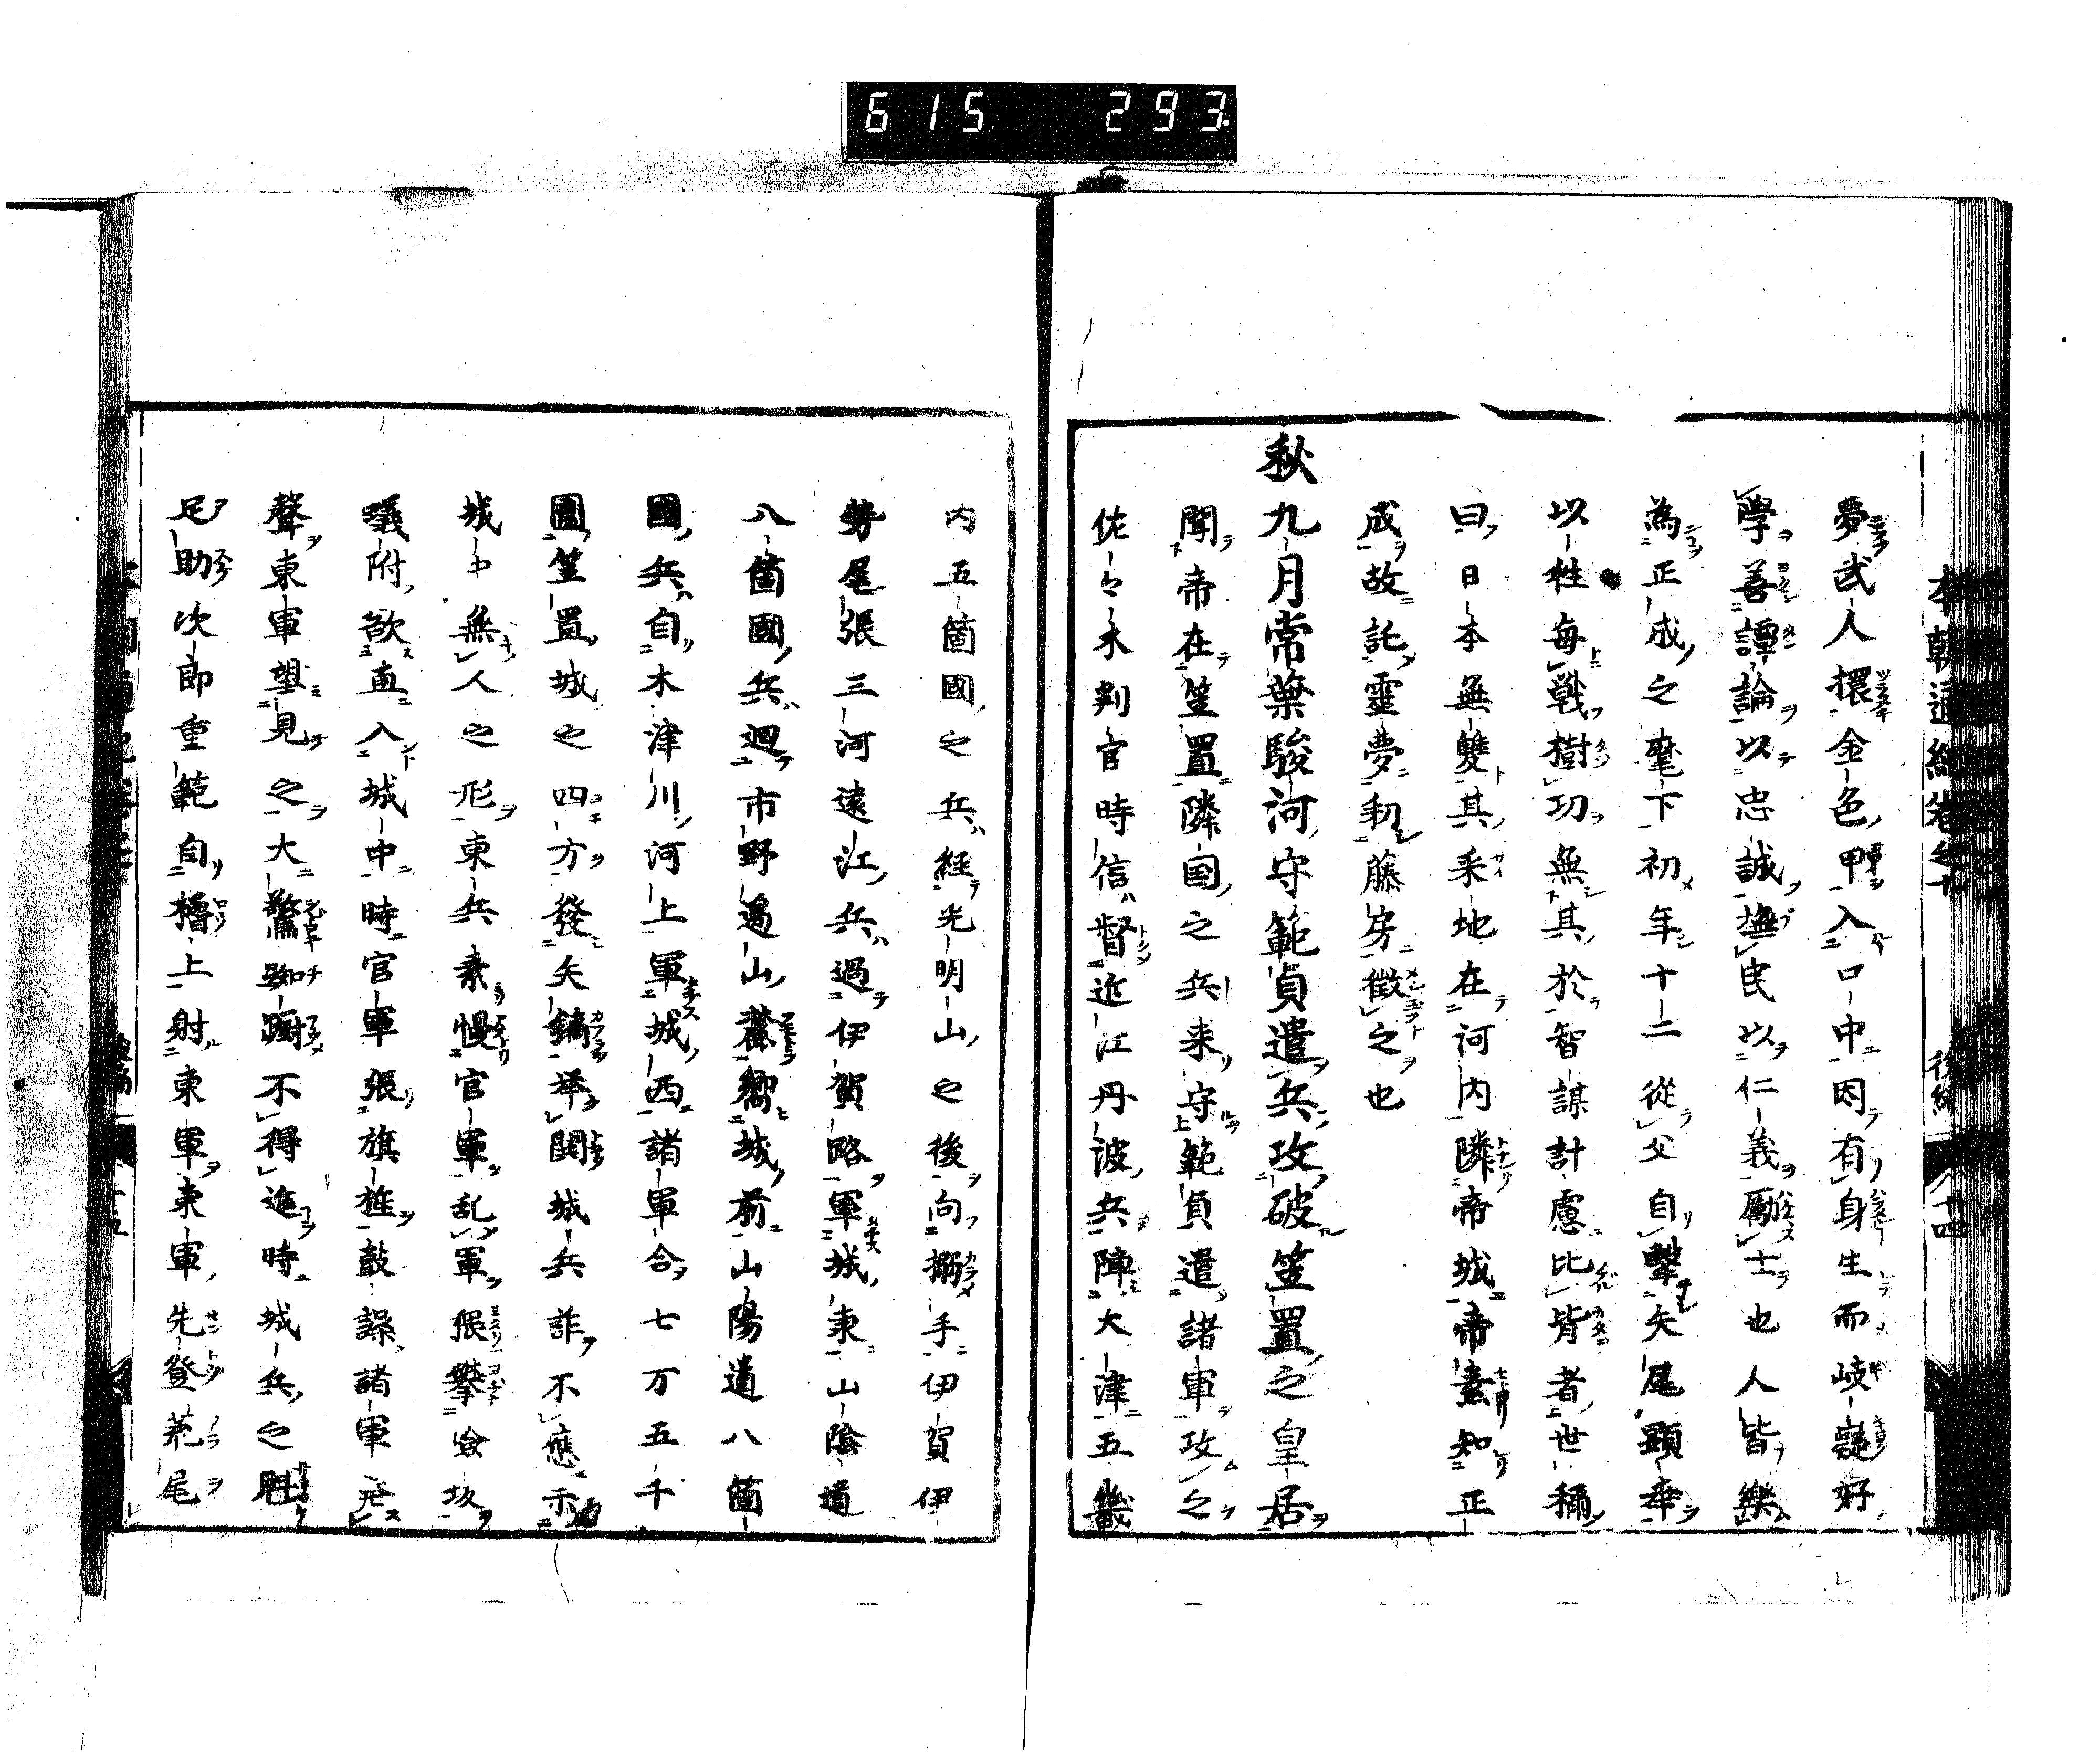 615 293
本朝通紀卷之十 後編 十四
夢武人擐金色甲入口中因有身生而岐嶷好
學善譚論以忠誠撫民以仁義勵士也人皆樂
為正成之麾下初年十二從父自擊矢尾顕幸
以徃每戰樹功無其於智謀計慮比皆者世稱
曰日本無雙其釆地在河内隣帝城帝素知正
成故託靈夢勅藤房徵之也
秋九月常葉駿河守範貞遣兵攻破笠置之皇居
聞帝在笠置隣国之兵来守範貞遣諸軍攻之
佐々木判官時信督近江丹波兵陣大津五畿
内五箇國之兵経光明山之後向搦手伊賀伊
勢尾張三河遠江兵過伊賀路軍城東山陰道
八箇國兵廻市野邉山麓嚮城前山陽道八箇
國兵自木津川河上軍城西諸軍合七万五千
圍笠置城之四方發矢鏑举鬨城兵詐不應示
城中無人之形東兵素慢官軍乱軍張攀嶮坂
蟻附欲直入城中時官軍張旗旌鼓譟諸軍
聲東軍望見之大驚踟蹰不得進時城兵之魁
足助次郎重範自櫓上射東軍東軍先登荒尾